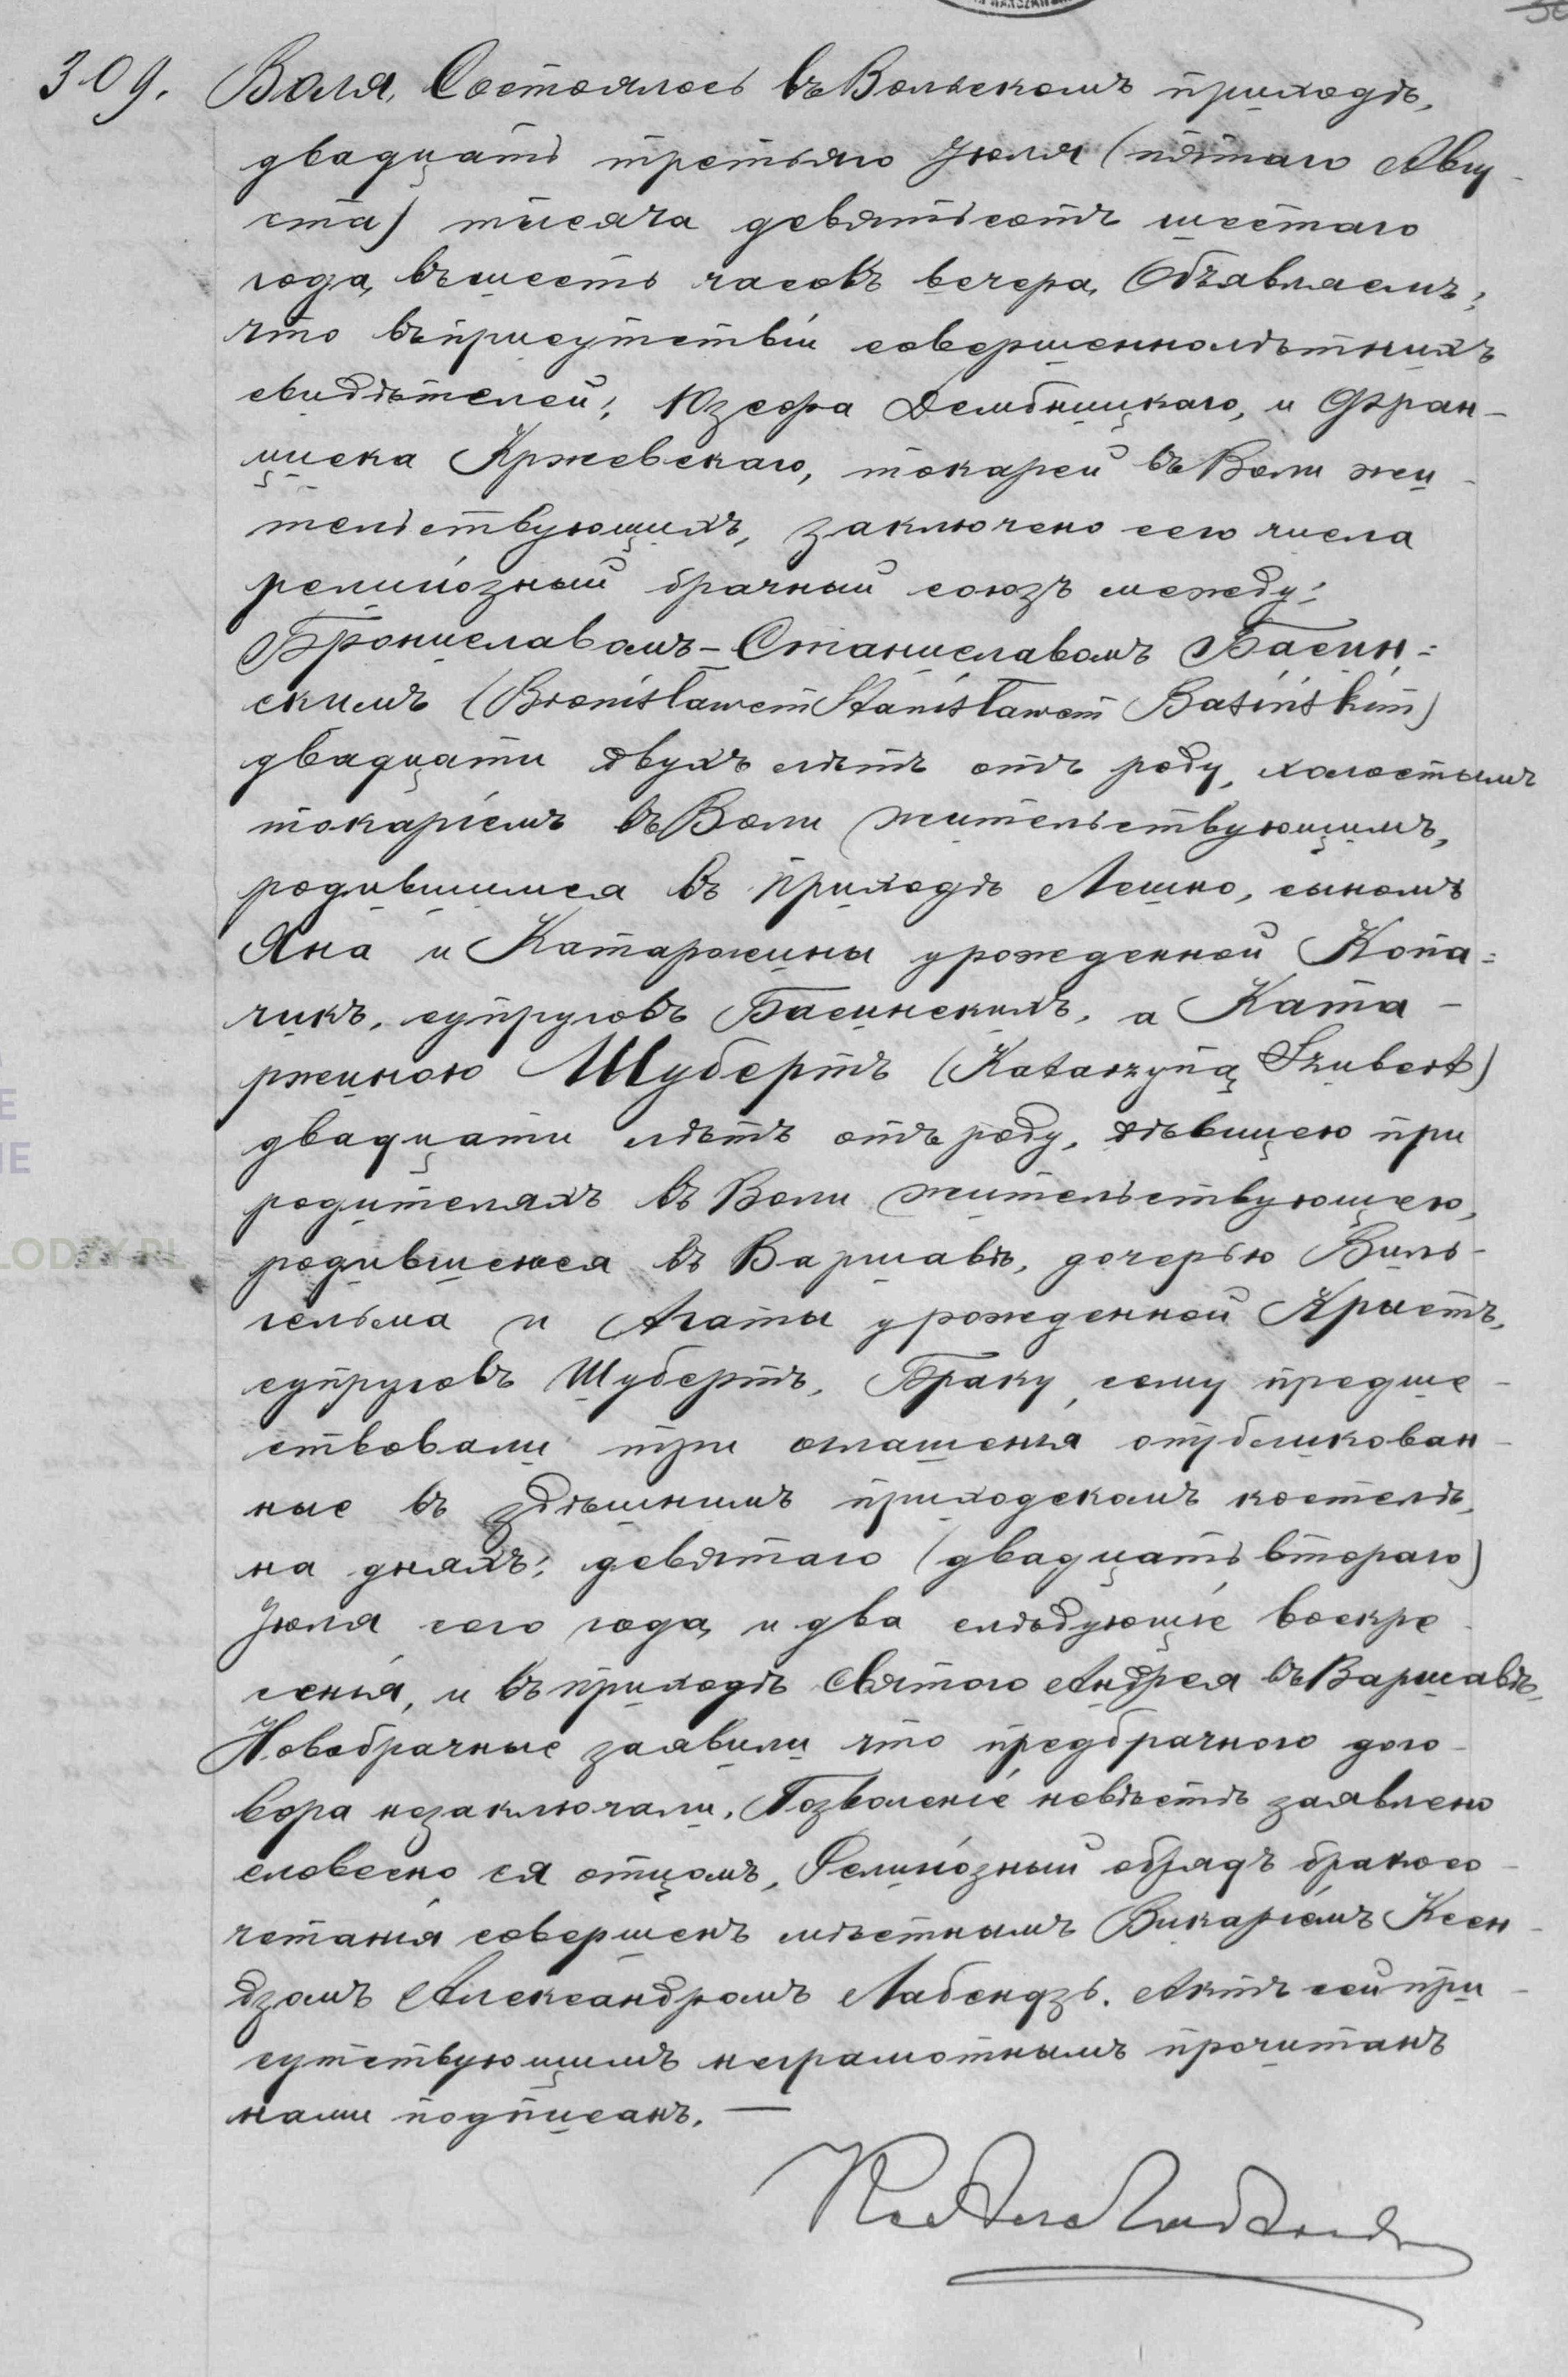 309. Воля, Состоялось въ Вольскомъ приходѣ,
двадцать третьяго Іюля (пятаго Авгу-
ста) тысяча девятьсотъ шестаго
года, въ шесть часовъ вечера, Объявляемъ,
что въ присутствіи совершеннолѣтнихъ
свидѣтелей: Юзефа Дембницкаго, и Фран-
циска Кржевскаго, токарей въ Воли жи-
тельствующихъ, заключено сего числа
религіозный брачный союзъ между:
Брониславомъ-Станиславомъ Басин=
скимъ (Bronisławem Stanisławem Basińskim)
двадцати двухъ лѣтъ отъ роду, холостымъ
токаріемъ въ Воли жительствующимъ,
родившимся въ приходѣ Лешно, сыномъ
Яна и Катаржины урожденной Копа=
чикъ, супруговъ Басинскихъ, а Ката-
ржиною Шубертъ (Katarzyną Szubert)
двадцати лѣтъ отъ роду, дѣвицею при
родителяхъ въ Воли жительствующею,
родившеюся въ Варшавѣ, дочерью Виль-
гельма и Агаты урожденной Кристъ,
супруговъ Шубертъ, Браку сему предше-
ствовали три оглашенія опубликован-
ные въ здѣшнимъ приходскомъ костелѣ,
на дняхъ: девятаго (двадцать втораго)
Іюля сего года, и два слѣдующіе воскре-
сенія, и въ приходѣ Святого Андрея въ Варшавѣ,
Новобрачные заявили что предбрачного дого-
вора незаключали, Позволеніе невѣстѣ заявлено
словесно ея отцомъ, Религіозный обрядъ бракосо-
четанія совершенъ мѣстнымъ Викаріемъ Ксен-
дзомъ Александромъ Лабендзь. Актъ сей при-
сутствующимъ неграмотнымъ прочитанъ
нами подписанъ. —